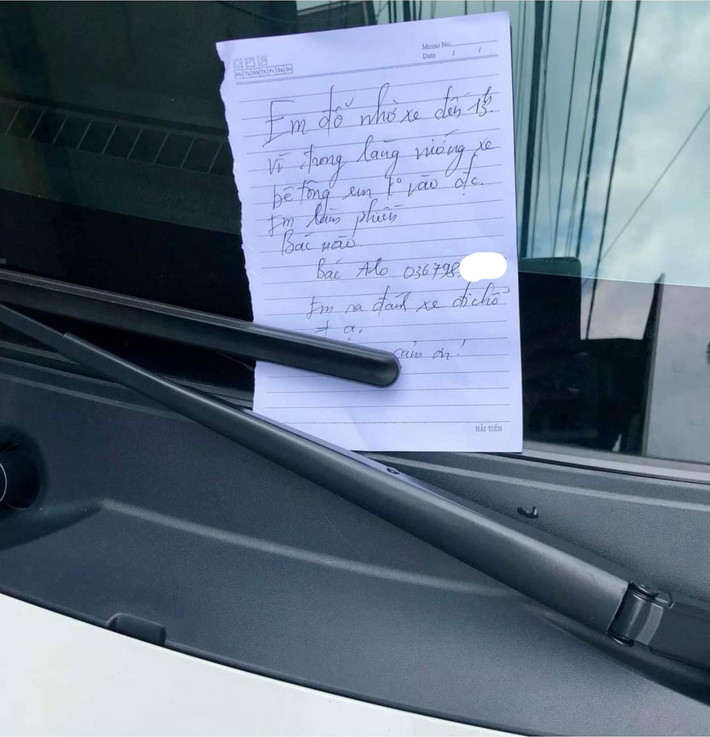 Memo No.
Date / /
Mo Tu We Th Fr Sa Su
Em đỗ nhờ xe đến 13h
vì trong làng vướng xe
bê tông em k° vào đc.
Em làm phiền
Bác nào.
Bác Alo 036798
Em ra đánh xe đi chỗ
≠ ạ.
cảm ơn!
HẢI TIẾN